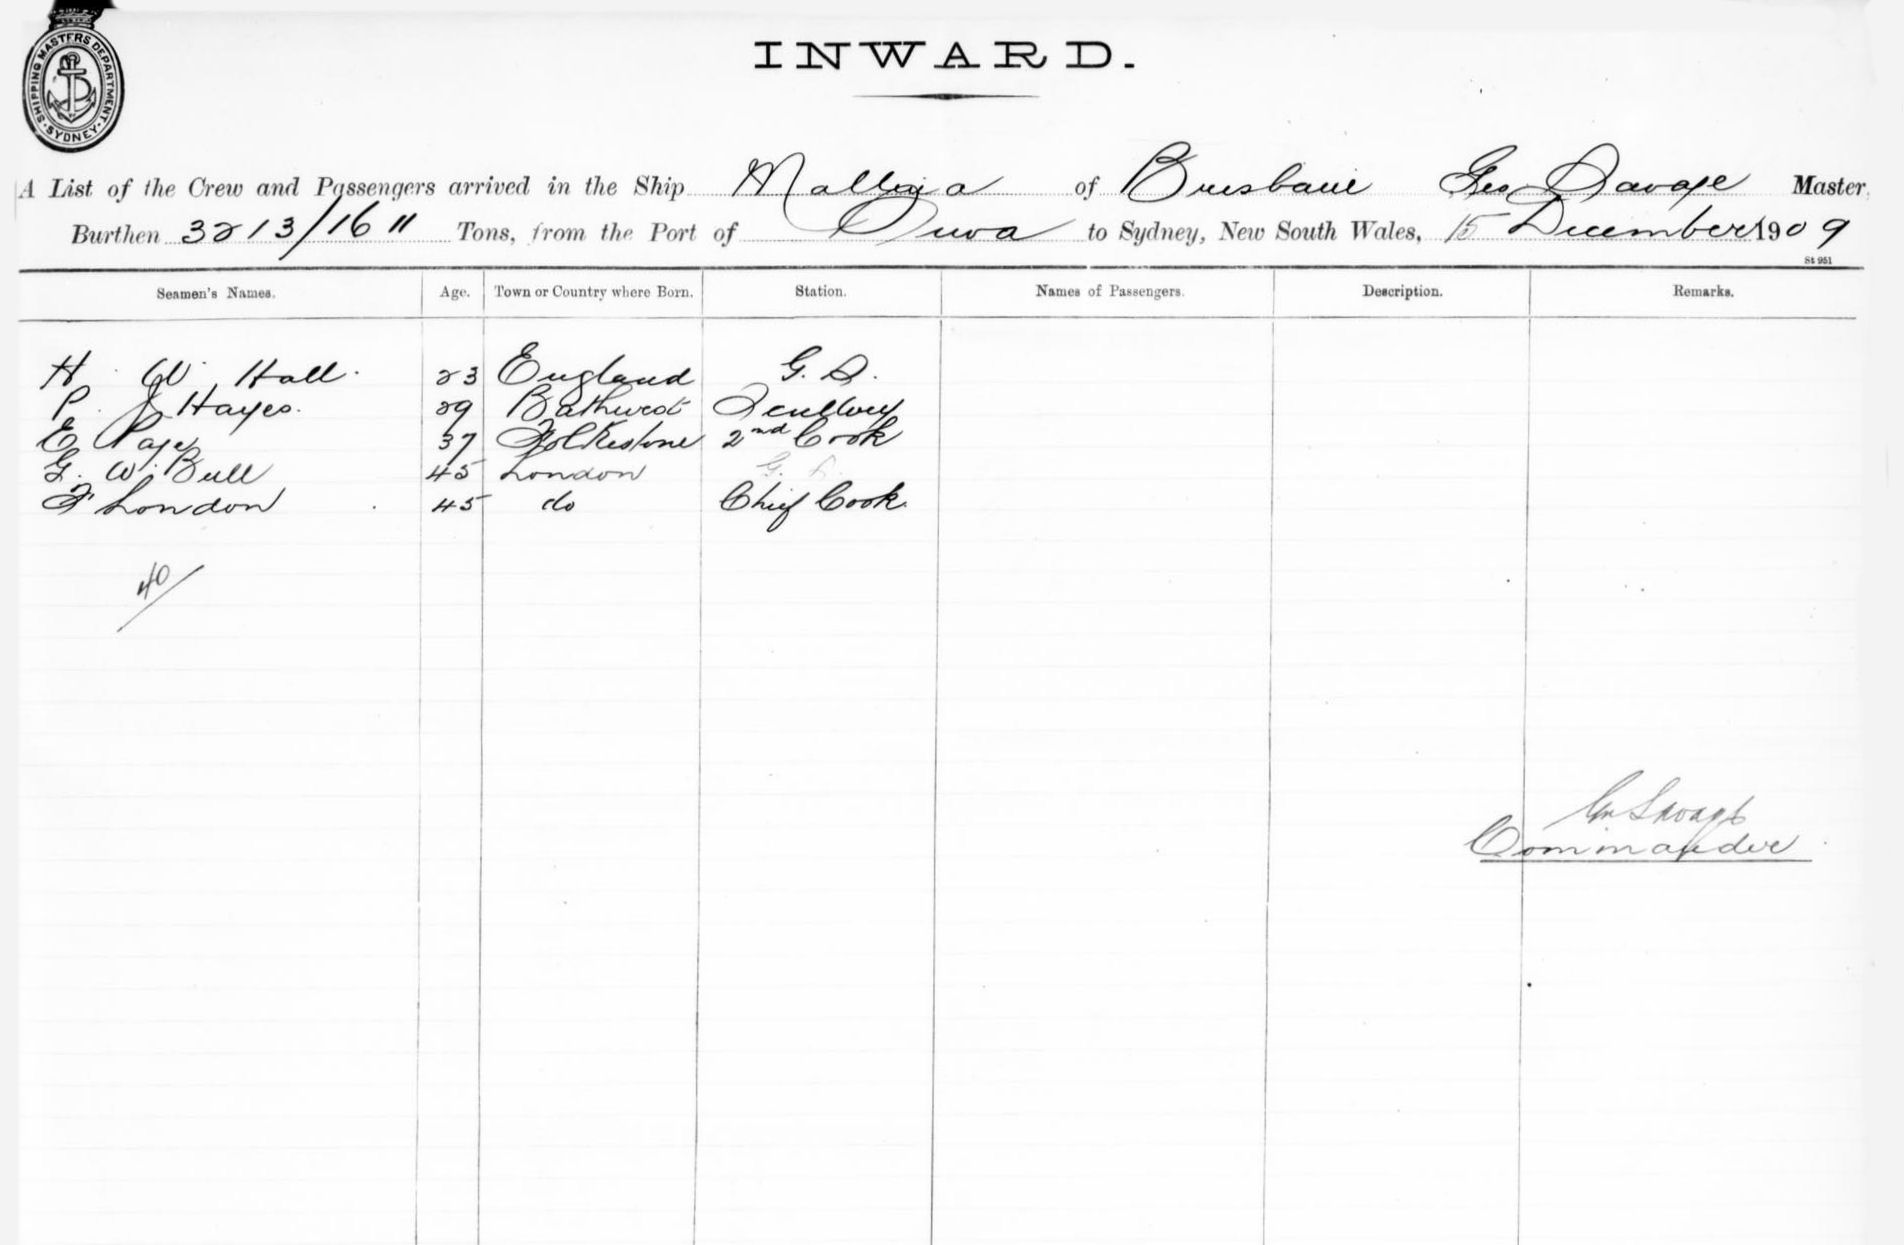 SHIPPING MASTERS DEPARTMENT
SYDNEY
INWARD.
A List of the Crew and Passengers arrived in the Ship of Brisbane Geo Savage Master,
Burthen 3213/1611 Tons, from the Port of Suva to Sydney, New South Wales, 15 December 1909
St 951
Seamen's Names. Age. Town or Country where Born. Station. Names of Passengers. Description. Remarks.
H. W. Hall. 23 England G. S.
P. J. Hayes. 29 Bathurst
E Page 37 Folkestone 2nd Cook
G. W. Bull 45 London
F London 45 do Chief Cook.
40/
Savage
Commander